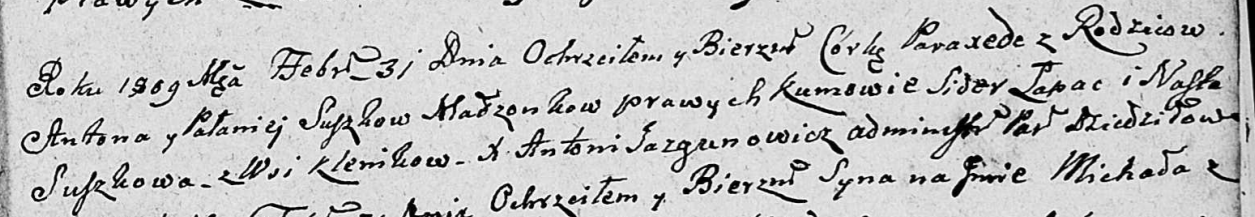 prawych
Roku 1809 Mca Febr 31 Dnia Ochrzciłem y Bierzm Córkę Paraxede z Rodzicow
Antona y Pałaniej Suszkow Małzonkow prawych kumowie Sider Łapac i Nasta
Suszkowa z Wsi Klenikow X Antoni Jazgunowicz administr Par Dziedziłow
Dnia Ochrzciłem y Bierzm Syna na Jmie Michała z